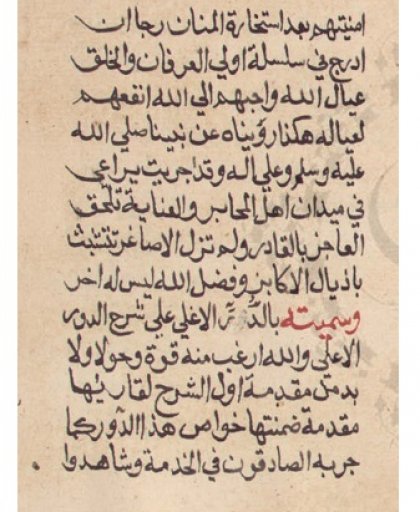 امنيتهم بعد استخارة المنان رجا ان
ادرج في سلسلة اولي العرفان والخلق
عيال الله واحبهم الي الله انفعهم
لعياله هكذا رويناه عن نبينا صلي الله
عليه وسلم وعلي اله وقد اجريت يراعي
في ميدان اهل المحابر والعناية تلحق
العاجز بالقادر ولم تزل الاصاغر تتشبث
باذيال الاكابر وفضل الله ليس له اخر
وسميته بالدر الاغلي علي شرح الدور
الاعلي والله ارغب منه قوة وحولا ولا
بد من مقدمة اول الشرح لقارئها
مقدمة ضمنتها خواص هذا الدور كما
جربه الصادقون في الخدمة وشاهدوا